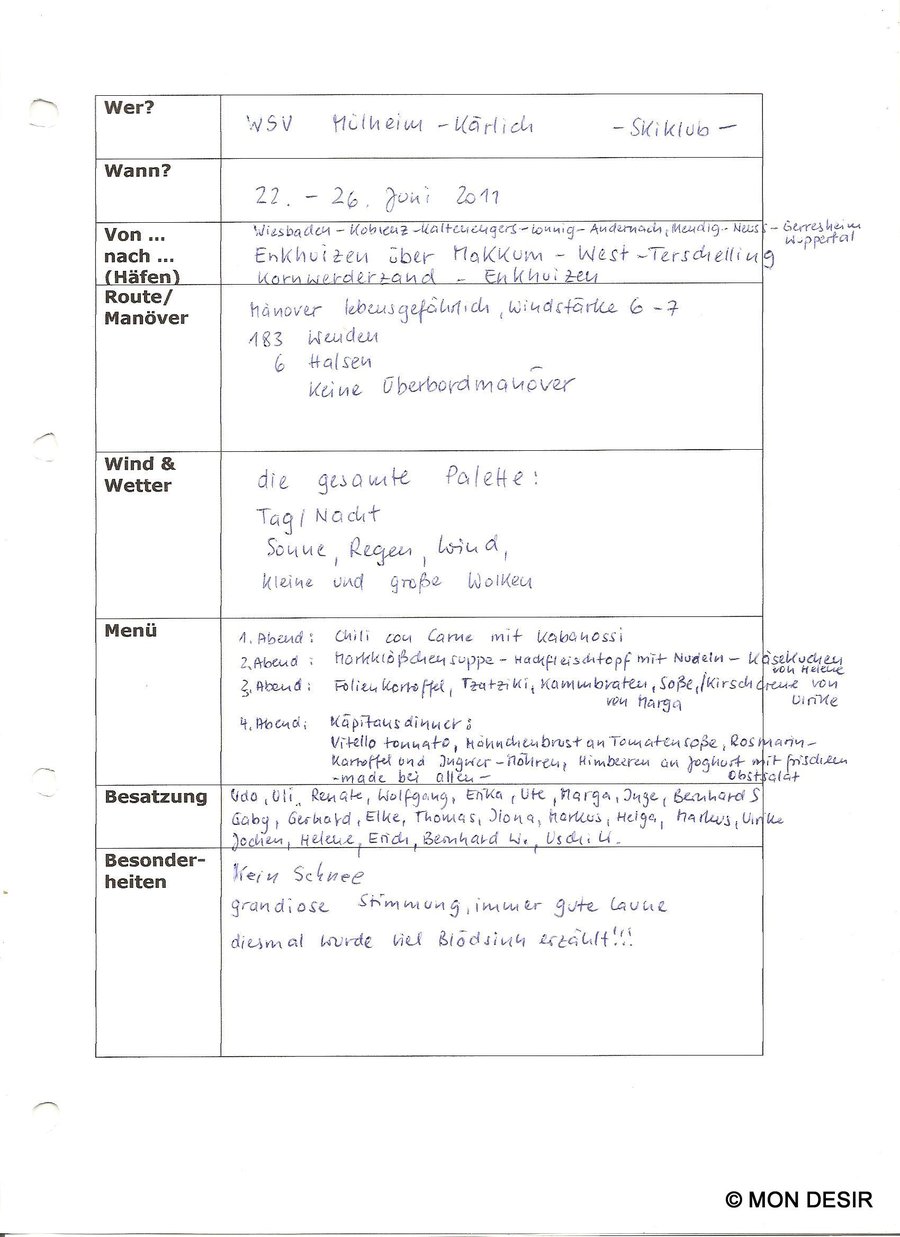 Wer?
WSV Mülheim-Kärlich -Skiklub-
Wann?
22. - 26. Juni 2011
Von ... nach ... (Häfen)
Wiesbaden - Koblenz - Kaltenengers - Lonnig - Andernach, Mendig - Neuss - Gerresheim
Wuppertal
Enkhuizen über Makkum - West - Terschelling
Kornwerderzand - Enkhuizen
Route/
Manöver
Manöver lebensgefährlich, Windstärke 6 - 7
183 Wenden
6 Halsen
Keine Überbordmanöver
Wind &
Wetter
die gesamte Palette:
Tag / Nacht
Sonne, Regen, Wind,
kleine und große Wolken
Menü
1. Abend: Chili con Carne mit Kabanossi
2. Abend: Markklößchensuppe - Hackfleischtopf mit Nudeln - Käsekuchen
von Helene
3. Abend: Folienkartoffel, Tzatziki, Kammbraten, Soße, / Kirschcreme von
von Marga Ulrike
4. Abend: Käpitänsdinner:
Vitello tonnato, Hähnchenbrust an Tomatensoße, Rosmarin-
Kartoffel und Ingwer-Möhren, Himbeeren an Joghurt mit frischem
-made bei allen- Obstsalat
Besatzung
Udo, Uli, Renate, Wolfgang, Erika, Ute, Marga, Inge, Bernhard S
Gaby, Gerhard, Elke, Thomas, Ilona, Markus, Helga, Markus, Ulrike
Jochen, Helene, Erich, Bernhard W., Uschi K.
Besonder-
heiten
Kein Schnee
grandiose Stimmung, immer gute Laune
diesmal wurde viel Blödsinn erzählt!!!
© MON DESIR